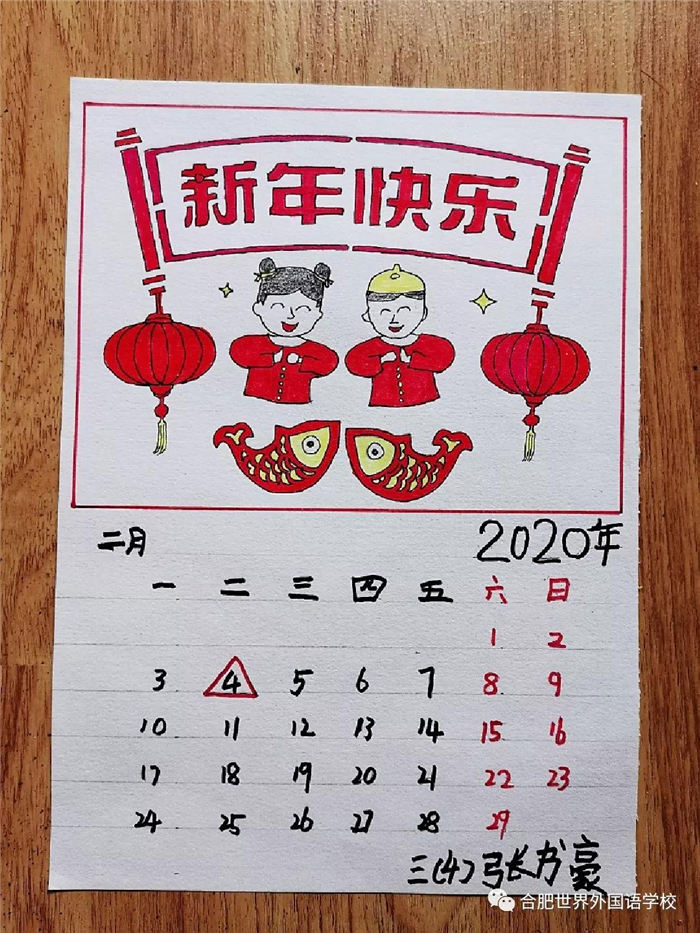 新年快乐
二月 2020年
一 二 三 四 五 六 日
1 2
3 4 5 6 7 8 9
10 11 12 13 14 15 16
17 18 19 20 21 22 23
24 25 26 27 28 29
三(4)张书豪
合肥世界外国语学校